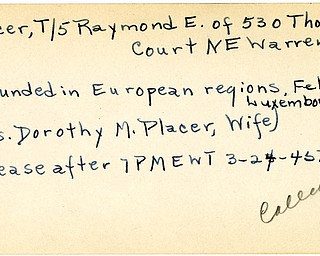 cer, T/5 Raymond E. of 530 Tho
Court NE Warre
unded in European regions, Fe
Luxembou
s. Dorothy M. Placer, Wife)
ease after 7PMEWT 3-24-45